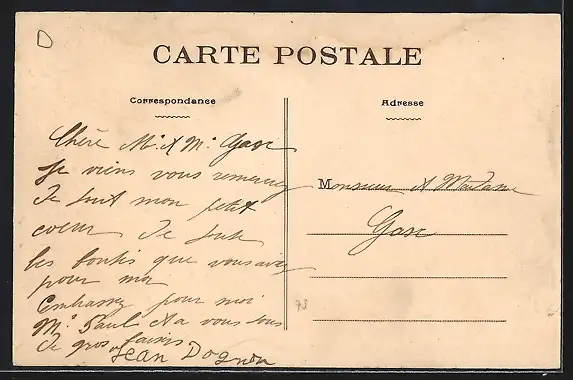 D
CARTE POSTALE
Correspondance
Chère M. et Me Gase
Je viens vous remerciez
De tout mon petit
coeur De toute
les bontés que vous aviez
pour moi
Embrassez pour moi
Mr Paul et a vous tous
De gros baisers
Jean Dognon
Adresse
Monsieur et Madame
Gase